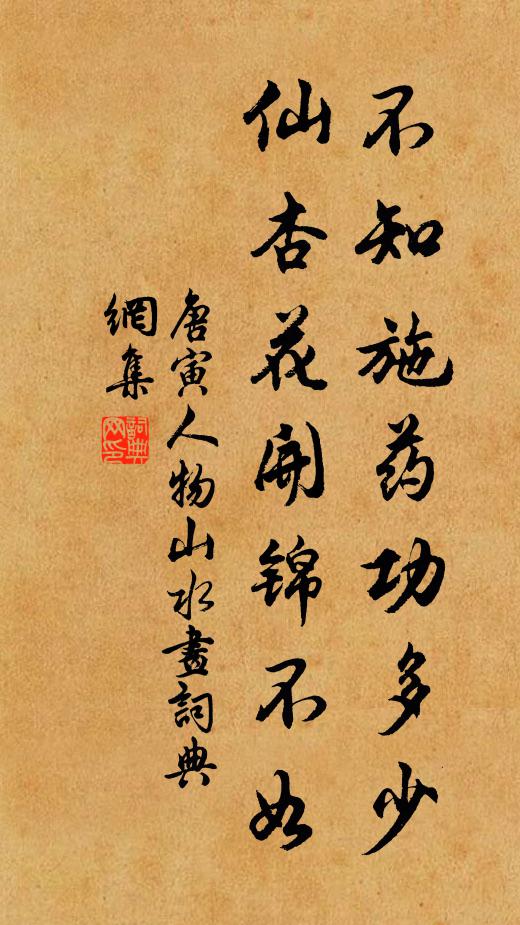 不知施药功多少
仙杏花开锦不如
唐寅人物山水畫詞典
網集
詞典
网印